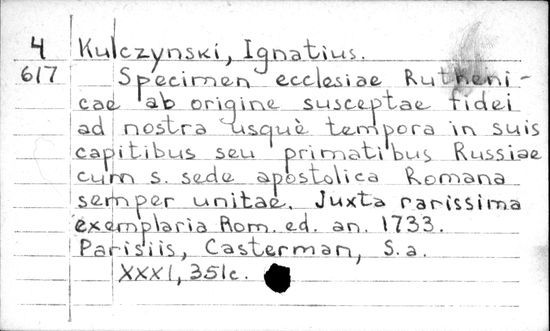 4 Kulczynski, Ignatius.
617 Specimen ecclesiae Rutheni-
cae ab origine susceptae fidei
ad nostra usquè tempora in suis
capitibus seu primatibus Russiae
cum s. sede apostolica Romana
semper unitae. Juxta rarissima
exemplaria Rom. ed. an. 1733.
Parisiis, Casterman, S.a.
XXXI, 351c.